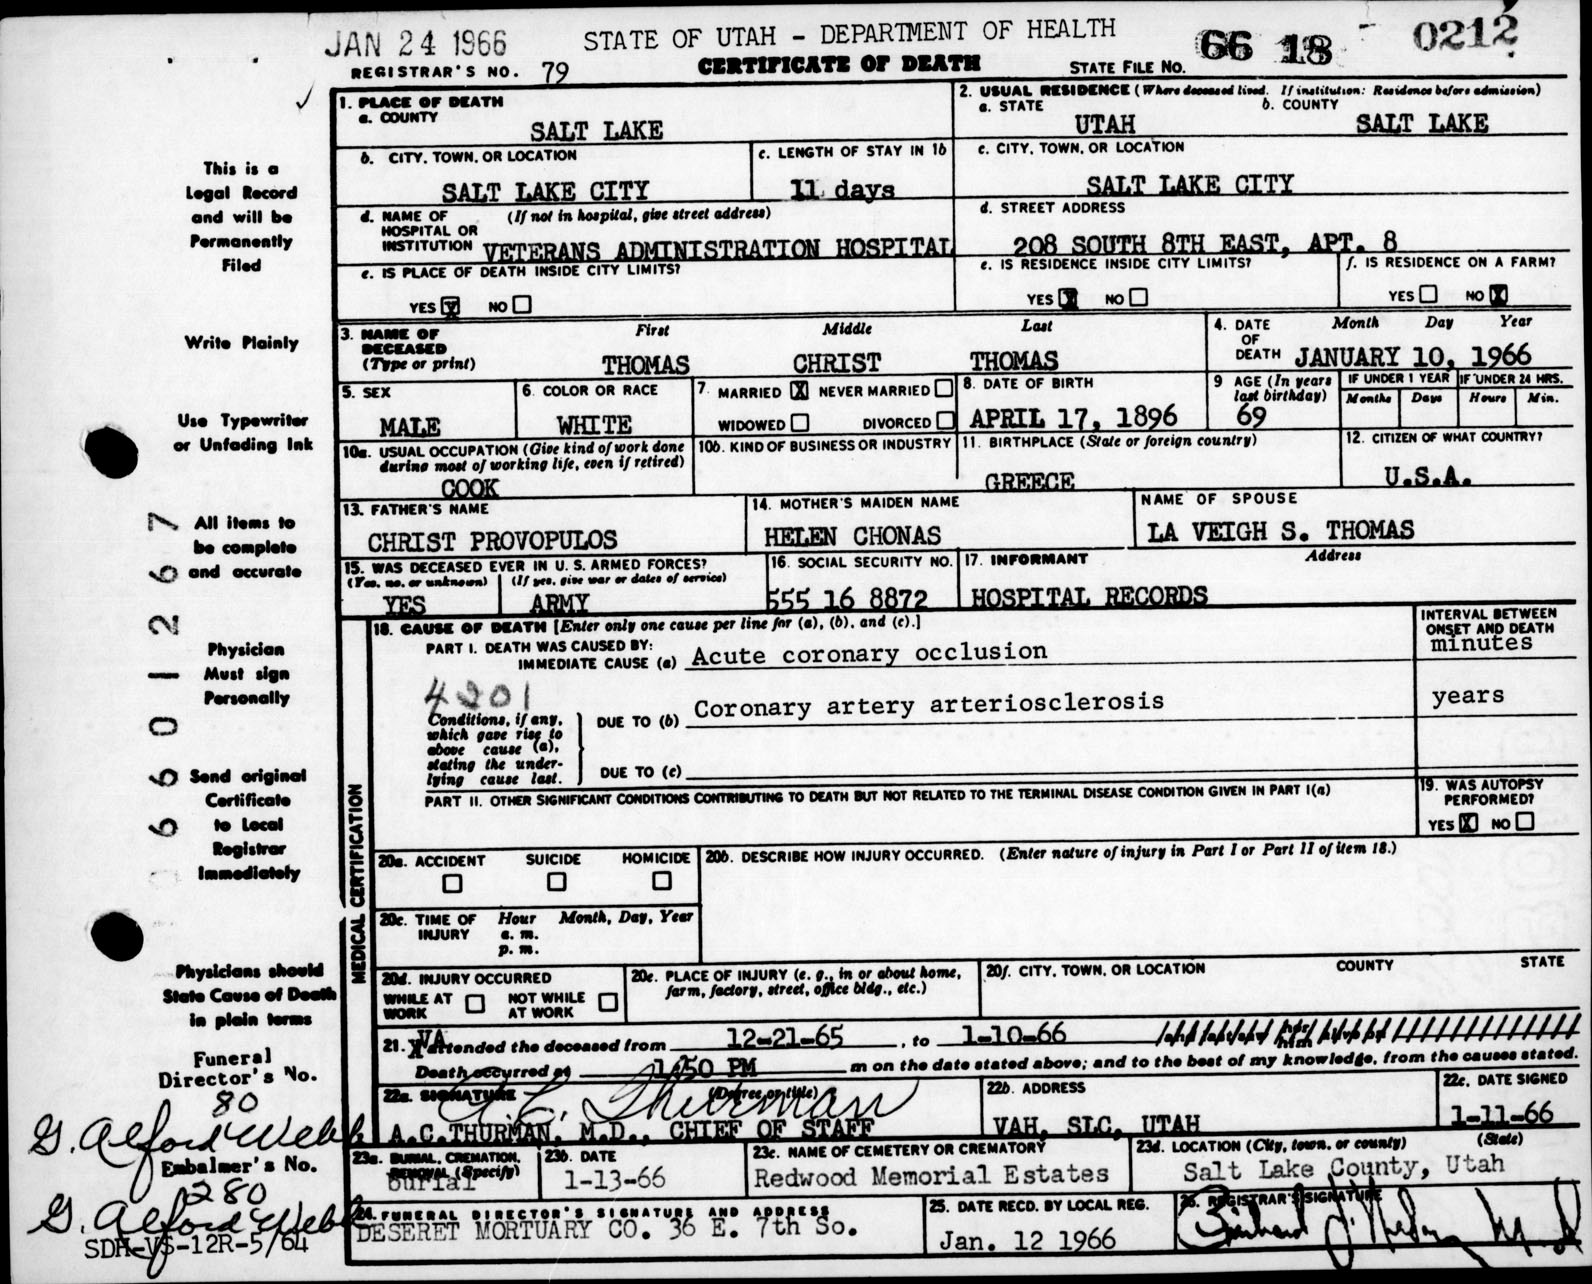 JAN 24 1966
STATE OF UTAH - DEPARTMENT OF HEALTH
66 18 0212
REGISTRAR'S NO. 79
CERTIFICATE OF DEATH
STATE FILE NO.
1. PLACE OF DEATH
a. COUNTY
SALT LAKE
2. USUAL RESIDENCE (Where deceased lived. If institution: Residence before admission)
a. STATE
UTAH
b. COUNTY
SALT LAKE
b. CITY, TOWN, OR LOCATION
SALT LAKE CITY
c. LENGTH OF STAY IN 1b
11 days
c. CITY, TOWN, OR LOCATION
SALT LAKE CITY
d. NAME OF HOSPITAL OR INSTITUTION
(If not in hospital, give street address)
VETERANS ADMINISTRATION HOSPITAL
d. STREET ADDRESS
208 SOUTH 8TH EAST, APT. 8
e. IS PLACE OF DEATH INSIDE CITY LIMITS?
YES X NO
e. IS RESIDENCE INSIDE CITY LIMITS?
YES X NO
f. IS RESIDENCE ON A FARM?
YES NO X
3. NAME OF DECEASED
(Type or print)
First Middle Last
THOMAS CHRIST THOMAS
4. DATE OF DEATH
Month Day Year
JANUARY 10, 1966
5. SEX
MALE
6. COLOR OR RACE
WHITE
7. MARRIED X NEVER MARRIED
WIDOWED DIVORCED
8. DATE OF BIRTH
APRIL 17, 1896
9 AGE (In years last birthday)
69
IF UNDER 1 YEAR
Months Days
IF UNDER 24 HRS.
Hours Min.
10a. USUAL OCCUPATION (Give kind of work done during most of working life, even if retired)
COOK
10b. KIND OF BUSINESS OR INDUSTRY
11. BIRTHPLACE (State or foreign country)
GREECE
12. CITIZEN OF WHAT COUNTRY?
U.S.A.
13. FATHER'S NAME
CHRIST PROVOPULOS
14. MOTHER'S MAIDEN NAME
HELEN CHONAS
NAME OF SPOUSE
LA VEIGH S. THOMAS
15. WAS DECEASED EVER IN U. S. ARMED FORCES?
(Yes, no, or unknown) (If yes, give war or dates of service)
YES ARMY
16. SOCIAL SECURITY NO.
555 16 8872
17. INFORMANT Address
HOSPITAL RECORDS
MEDICAL CERTIFICATION
18. CAUSE OF DEATH [Enter only one cause per line for (a), (b), and (c).]
INTERVAL BETWEEN ONSET AND DEATH
PART I. DEATH WAS CAUSED BY:
IMMEDIATE CAUSE (a) Acute coronary occlusion
minutes
4201
Conditions, if any, which gave rise to above cause (a), stating the underlying cause last.
DUE TO (b) Coronary artery arteriosclerosis
years
DUE TO (c)
PART II. OTHER SIGNIFICANT CONDITIONS CONTRIBUTING TO DEATH BUT NOT RELATED TO THE TERMINAL DISEASE CONDITION GIVEN IN PART I(a)
19. WAS AUTOPSY PERFORMED?
YES X NO
20a. ACCIDENT SUICIDE HOMICIDE
20b. DESCRIBE HOW INJURY OCCURRED. (Enter nature of injury in Part I or Part II of item 18.)
20c. TIME OF INJURY
Hour Month, Day, Year
a. m.
p. m.
20d. INJURY OCCURRED
WHILE AT WORK NOT WHILE AT WORK
20e. PLACE OF INJURY (e. g., in or about home, farm, factory, street, office bldg., etc.)
20f. CITY, TOWN, OR LOCATION COUNTY STATE
21. VA attended the deceased from 12-21-65, to 1-10-66
Death occurred at 1:50 PM m on the date stated above; and to the best of my knowledge, from the causes stated.
22a. SIGNATURE (Degree or title)
A C Thurman
A.C.THURMAN, M.D., CHIEF OF STAFF
22b. ADDRESS
VAH, SLC, UTAH
22c. DATE SIGNED
1-11-66
23a. BURIAL, CREMATION, REMOVAL (Specify)
Burial
23b. DATE
1-13-66
23c. NAME OF CEMETERY OR CREMATORY
Redwood Memorial Estates
23d. LOCATION (City, town, or county) (State)
Salt Lake County, Utah
24. FUNERAL DIRECTOR'S SIGNATURE AND ADDRESS
DESERET MORTUARY CO. 36 E. 7th So.
25. DATE RECD. BY LOCAL REG.
Jan. 12 1966
26. REGISTRAR'S SIGNATURE
This is a
Legal Record
and will be
Permanently
Filed
Write Plainly
Use Typewriter
or Unfading Ink
All items to
be complete
and accurate
Physician
Must sign
Personally
Send original
Certificate
to Local
Registrar
Immediately
Physicians should
State Cause of Death
in plain terms
Funeral
Director's No.
80
G. Alford Webb
Embalmer's No.
280
G. Alford Webb
SDH-VS-12R-5/64
66012267